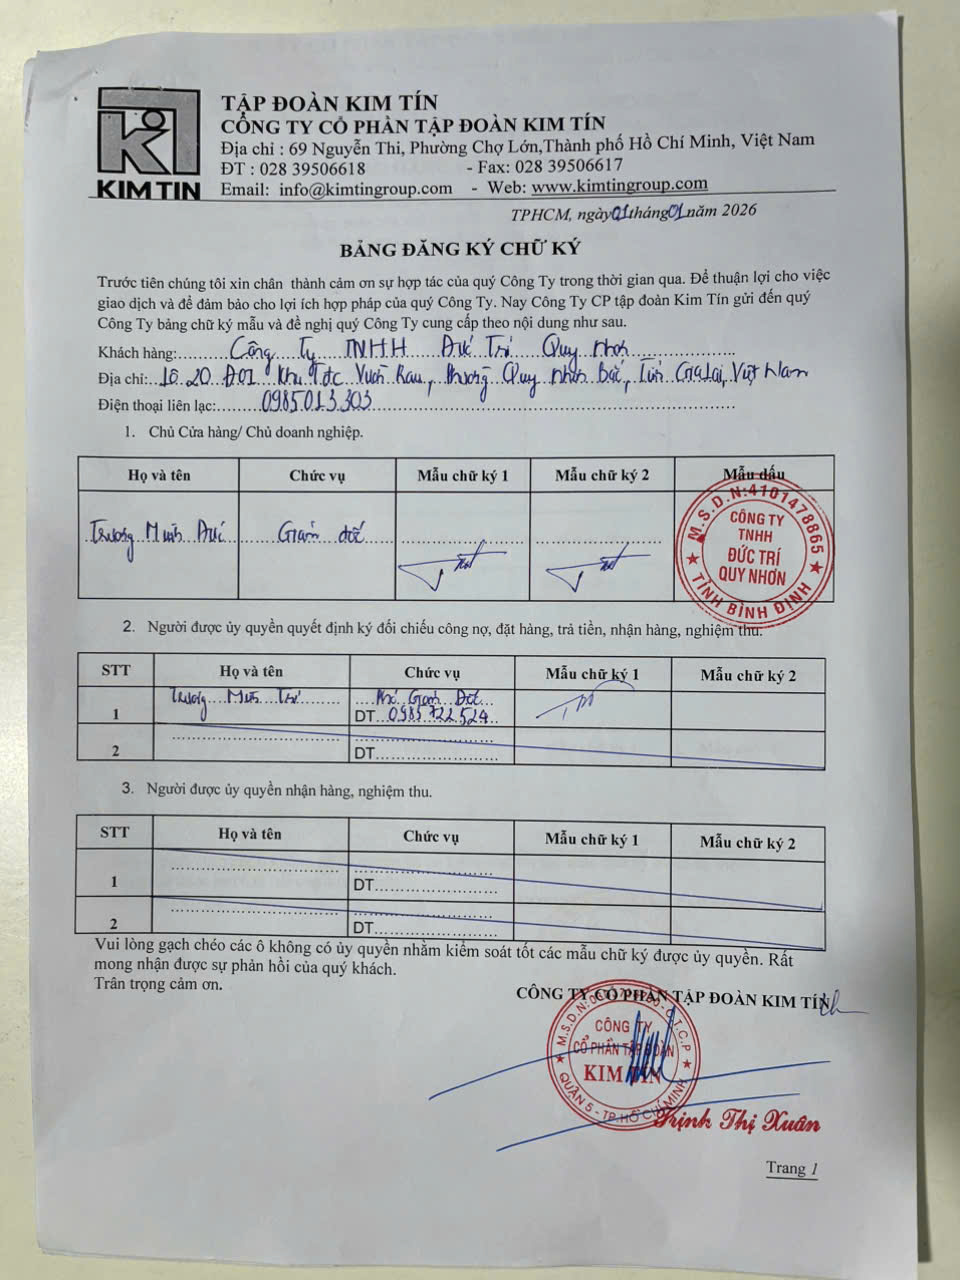 KIM TIN
TẬP ĐOÀN KIM TÍN
CÔNG TY CỔ PHẦN TẬP ĐOÀN KIM TÍN
Địa chỉ : 69 Nguyễn Thi, Phường Chợ Lớn,Thành phố Hồ Chí Minh, Việt Nam
ĐT : 028 39506618 - Fax: 028 39506617
Email: info@kimtingroup.com - Web: www.kimtingroup.com
TPHCM, ngày 01 tháng 01 năm 2026
BẢNG ĐĂNG KÝ CHỮ KÝ
Trước tiên chúng tôi xin chân thành cảm ơn sự hợp tác của quý Công Ty trong thời gian qua. Để thuận lợi cho việc
giao dịch và để đảm bảo cho lợi ích hợp pháp của quý Công Ty. Nay Công Ty CP tập đoàn Kim Tín gửi đến quý
Công Ty bảng chữ ký mẫu và đề nghị quý Công Ty cung cấp theo nội dung như sau.
Khách hàng: Công Ty TNHH Đức Trí Quy Nhơn
Địa chỉ: Lô 20 Đ01 Khu TĐC Vườn Rau, Phường Quy Nhơn Bắc, Tỉnh Gia Lai, Việt Nam
Điện thoại liên lạc: 0985013303
1. Chủ Cửa hàng/ Chủ doanh nghiệp.
Họ và tên Chức vụ Mẫu chữ ký 1 Mẫu chữ ký 2 Mẫu dấu
Trương Minh Đức Giám đốc
M.S.D.N:4101478865
CÔNG TY
TNHH
ĐỨC TRÍ
QUY NHƠN
TỈNH BÌNH ĐỊNH
2. Người được ủy quyền quyết định ký đối chiếu công nợ, đặt hàng, trả tiền, nhận hàng, nghiệm thu.
STT Họ và tên Chức vụ Mẫu chữ ký 1 Mẫu chữ ký 2
1 Trương Minh Trí Phó Giám Đốc
DT 0985722524
2 DT
3. Người được ủy quyền nhận hàng, nghiệm thu.
STT Họ và tên Chức vụ Mẫu chữ ký 1 Mẫu chữ ký 2
1 DT
2 DT
Vui lòng gạch chéo các ô không có ủy quyền nhằm kiểm soát tốt các mẫu chữ ký được ủy quyền. Rất
mong nhận được sự phản hồi của quý khách.
Trân trọng cảm ơn.
CÔNG TY CỔ PHẦN TẬP ĐOÀN KIM TÍN
CÔNG TY
CỔ PHẦN TẬP ĐOÀN
KIM TÍN
QUẬN 5 - TP.HỒ CHÍ MINH
Trịnh Thị Xuân
Trang 1